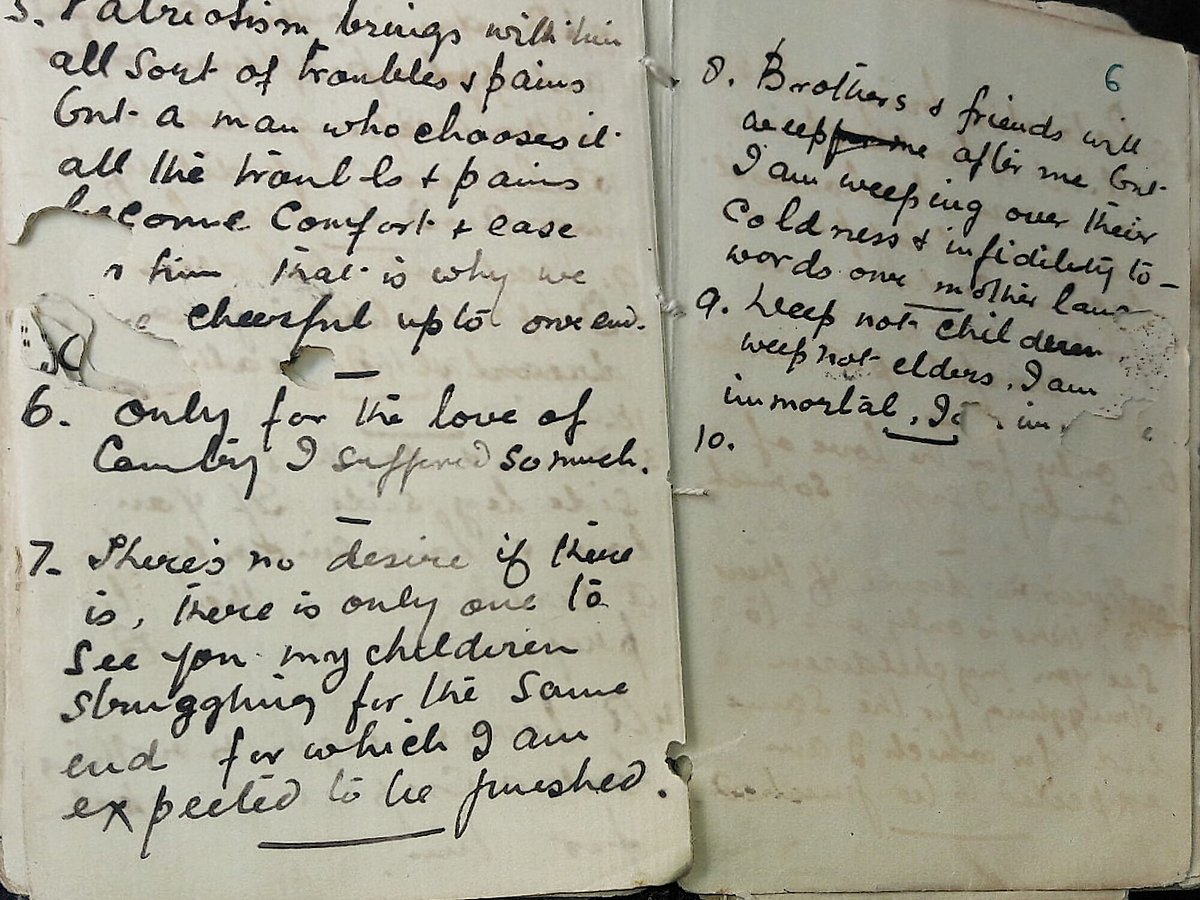 5. Patriotism brings with him
all sort of troubles & pains
but a man who chooses it
all the troubls & pains
become comfort & ease
him that is why we
cheerful up to our end.
6. only for the love of
Country I suffered so much.
7. There's no desire if there
is, there is only one to
see you my childeren
struggling for the same
end for which I am
expected to be punished.
6
8. Brothers & friends will
weep me after me but
I am weeping over their
coldness & infidility to
words our mother
9. Weep not childeren
weep not elders. I am
immortal, I
10.